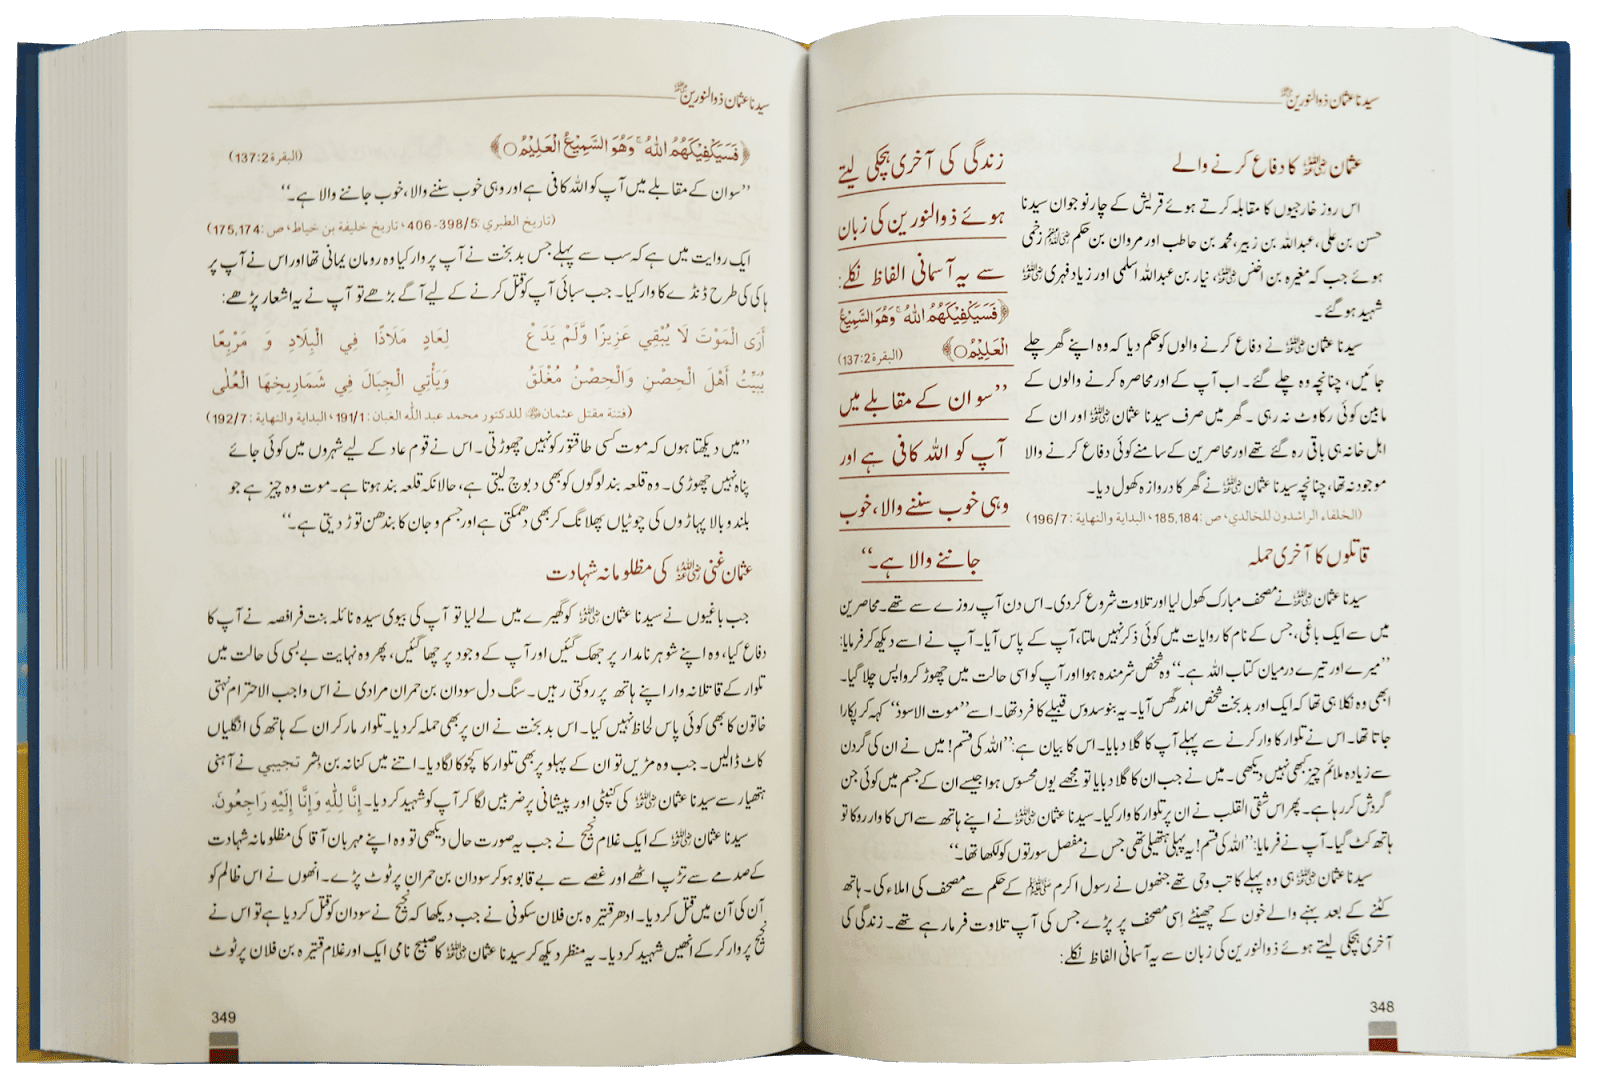 سیدنا عثمان ذوالنورین ﷜
عثمان ﷜ کا دفاع کرنے والے
اس روز خارجیوں کا مقابلہ کرتے ہوئے قریش کے چار نوجوان سیدنا
حسن بن علی، عبداللہ بن زبیر، محمد بن حاطب اور مروان بن حکم ﷢ زخمی
ہوئے جب کہ مغیرہ بن اخنس ﷜، نیار بن عبداللہ اسلمی اور زیاد فہری ﷜
شہید ہو گئے۔
سیدنا عثمان ﷜ نے دفاع کرنے والوں کو حکم دیا کہ وہ اپنے گھر چلے
جائیں، چنانچہ وہ چلے گئے۔ اب آپ کے اور محاصرہ کرنے والوں کے
مابین کوئی رکاوٹ نہ رہی۔ گھر میں صرف سیدنا عثمان ﷜ اور ان کے
اہل خانہ ہی باقی رہ گئے تھے اور محاصرین کے سامنے کوئی دفاع کرنے والا
موجود نہ تھا، چنانچہ سیدنا عثمان ﷜ نے گھر کا دروازہ کھول دیا۔
(الخلفاء الراشدون للخالدي، ص: 185,184، البداية والنهاية: 196/7)
زندگی کی آخری ہچکی لیتے
ہوئے ذوالنورین کی زبان
سے یہ آسمانی الفاظ نکلے:
﴿فَسَيَكْفِيكَهُمُ اللهُ ۚ وَهُوَ السَّمِيعُ
الْعَلِيْمُ ○﴾ (البقرة 137:2)
’’سو ان کے مقابلے میں
آپ کو اللہ کافی ہے اور
وہی خوب سننے والا، خوب
جاننے والا ہے۔‘‘
قاتلوں کا آخری حملہ
سیدنا عثمان ﷜ نے مصحف مبارک کھول لیا اور تلاوت شروع کر دی۔ اس دن آپ روزے سے تھے۔ محاصرین
میں سے ایک باغی، جس کے نام کا روایات میں کوئی ذکر نہیں ملتا، آپ کے پاس آیا۔ آپ نے اسے دیکھ کر فرمایا:
’’میرے اور تیرے درمیان کتاب اللہ ہے۔‘‘ وہ شخص شرمندہ ہوا اور آپ کو اسی حالت میں چھوڑ کر واپس چلا گیا۔
ابھی وہ نکلا ہی تھا کہ ایک اور بدبخت شخص اندر گھس آیا۔ یہ بنو سدوس قبیلے کا فرد تھا۔ اسے ’’موت الاسود‘‘ کہہ کر پکارا
جاتا تھا۔ اس نے تلوار کا وار کرنے سے پہلے آپ کا گلا دبایا۔ اس کا بیان ہے: ’’اللہ کی قسم! میں نے ان کی گردن
سے زیادہ ملائم چیز کبھی نہیں دیکھی۔ میں نے جب ان کا گلا دبایا تو مجھے یوں محسوس ہوا جیسے ان کے جسم میں کوئی جن
گردش کر رہا ہے۔ پھر اس شقی القلب نے ان پر تلوار کا وار کیا۔ سیدنا عثمان ﷜ نے اپنے ہاتھ سے اس کا وار روکا تو
ہاتھ کٹ گیا۔ آپ نے فرمایا: ’’اللہ کی قسم! یہ پہلی ہتھیلی تھی جس نے مفصل سورتوں کو لکھا تھا۔‘‘
سیدنا عثمان ﷜ ہی وہ پہلے کاتب وحی تھے جنھوں نے رسول اکرم ﷺ کے حکم سے مصحف کی املاء کی۔ ہاتھ
کٹنے کے بعد بہنے والے خون کے چھینٹے اِسی مصحف پر پڑے جس کی آپ تلاوت فرما رہے تھے۔ زندگی کی
آخری ہچکی لیتے ہوئے ذوالنورین کی زبان سے یہ آسمانی الفاظ نکلے:
348
سیدنا عثمان ذوالنورین ﷜
﴿فَسَيَكْفِيكَهُمُ اللهُ ۚ وَهُوَ السَّمِيعُ الْعَلِيْمُ ○﴾ (البقرة 137:2)
’’سو ان کے مقابلے میں آپ کو اللہ کافی ہے اور وہی خوب سننے والا، خوب جاننے والا ہے۔‘‘
(تاريخ الطبري: 398/5-406، تاريخ خليفة بن خياط، ص: 175,174)
ایک روایت میں ہے کہ سب سے پہلے جس بدبخت نے آپ پر وار کیا وہ رومان یمانی تھا اور اس نے آپ پر
ہاکی کی طرح ڈنڈے کا وار کیا۔ جب سبائی آپ کو قتل کرنے کے لیے آگے بڑھے تو آپ نے یہ اشعار پڑھے:
أَرَى الْمَوْتَ لَا يُبْقِي عَزِيزًا وَّلَمْ يَدَعْ لِعَادٍ مَلَاذًا فِي الْبِلَادِ وَ مَرْبِعًا
يُبَيِّتُ أَهْلَ الْحِصْنِ وَالْحِصْنُ مُغْلَقٌ وَيَأْتِي الْجِبَالَ فِي شَمَارِيخِهَا الْعُلٰى
(فتنة مقتل عثمان ﷜ للدكتور محمد عبد الله الغبان: 191/1، البداية والنهاية: 192/7)
’’میں دیکھتا ہوں کہ موت کسی طاقتور کو نہیں چھوڑتی۔ اس نے قوم عاد کے لیے شہروں میں کوئی جائے
پناہ نہیں چھوڑی۔ وہ قلعہ بند لوگوں کو بھی دبوچ لیتی ہے، حالانکہ قلعہ بند ہوتا ہے۔ موت وہ چیز ہے جو
بلند و بالا پہاڑوں کی چوٹیاں پھلانگ کر بھی دھمکتی ہے اور جسم و جان کا بندھن توڑ دیتی ہے۔‘‘
عثمان غنی ﷜ کی مظلومانہ شہادت
جب باغیوں نے سیدنا عثمان ﷜ کو گھیرے میں لے لیا تو آپ کی بیوی سیدہ نائلہ بنت فرافصہ نے آپ کا
دفاع کیا، وہ اپنے شوہر نامدار پر جھک گئیں اور آپ کے وجود پر چھا گئیں، پھر وہ نہایت بے بسی کی حالت میں
تلوار کے قاتلانہ وار اپنے ہاتھ پر روکتی رہیں۔ سنگ دل سودان بن حمران مرادی نے اس واجب الاحترام نہتی
خاتون کا بھی کوئی پاس لحاظ نہیں کیا۔ اس بدبخت نے ان پر بھی حملہ کر دیا۔ تلوار مار کر ان کے ہاتھ کی انگلیاں
کاٹ ڈالیں۔ جب وہ مڑیں تو ان کے پہلو پر بھی تلوار کا کچوکا لگا دیا۔ اتنے میں کنانہ بن بشر تجیبی نے آہنی
ہتھیار سے سیدنا عثمان ﷜ کی کنپٹی اور پیشانی پر ضربیں لگا کر آپ کو شہید کر دیا۔ إِنَّا لِلّٰهِ وَإِنَّا إِلَيْهِ رَاجِعُونَ.
سیدنا عثمان ﷜ کے ایک غلام نجیح نے جب یہ صورت حال دیکھی تو وہ اپنے مہربان آقا کی مظلومانہ شہادت
کے صدمے سے تڑپ اٹھے اور غصے سے بے قابو ہو کر سودان بن حمران پر ٹوٹ پڑے۔ انھوں نے اس ظالم کو
آن کی آن میں قتل کر دیا۔ ادھر قتیرہ بن فلان سکونی نے جب دیکھا کہ نجیح نے سودان کو قتل کر دیا ہے تو اس نے
نجیح پر وار کر کے انھیں شہید کر دیا۔ یہ منظر دیکھ کر سیدنا عثمان ﷜ کا صبیح نامی ایک اور غلام قتیرہ بن فلان پر ٹوٹ
349